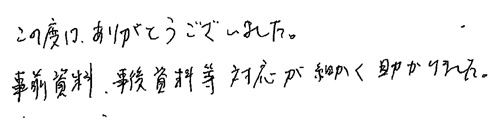 この度は、ありがとうございました。
事前資料、事後資料等 対応が細かく助かりました。